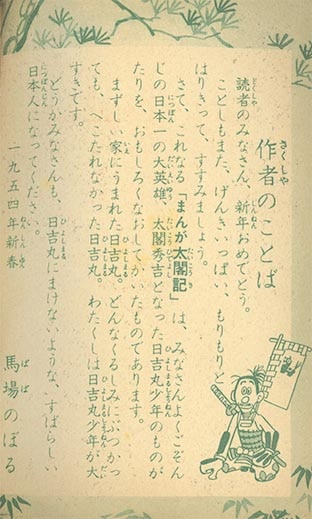 作者のことば
読者のみなさん、新年おめでとう。
ことしもまた、げんきいっぱい、もりもりと
はりきって、すすみましょう。
さて、これなる「まんが太閤記」は、みなさんよくごぞん
じの日本一の大英雄、太閤秀吉となった日吉丸少年のものが
たりを、おもしろくなおしてかいたものであります。
まずしい家にうまれた日吉丸。どんなくるしみにぶつかっ
ても、へこたれなかった日吉丸。わたくしは日吉丸少年が大
すきです。
どうかみなさんも、日吉丸にまけないような、すばらしい
日本人になってください。
一九五四年新春
馬場のぼる